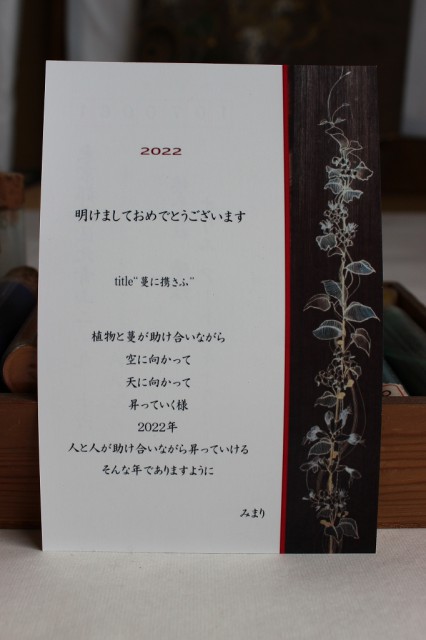 2022
明けましておめでとうございます
title“蔓に携さふ”
植物と蔓が助け合いながら
空に向かって
天に向かって
昇っていく様
2022年
人と人が助け合いながら昇っていける
そんな年でありますように
みまり